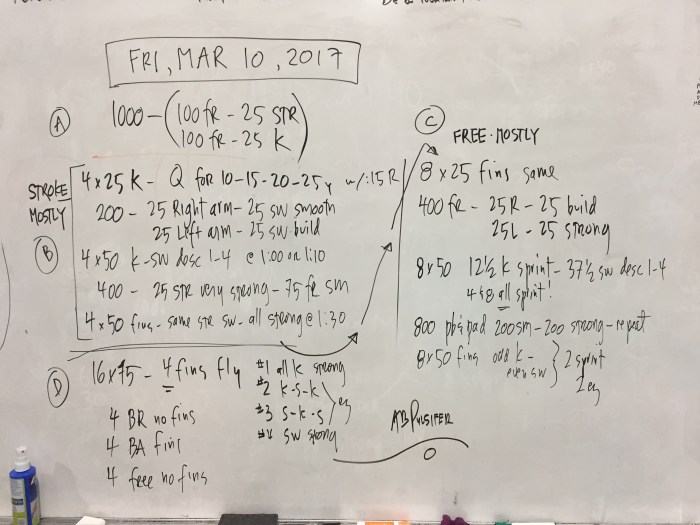 FRI, MAR 10, 2017
A
1000 - (100 FR - 25 STR
100 FR - 25 K)
STROKE MOSTLY
B
4 x 25 K - Q FOR 10-15-20-25y w/:15 R
200 - 25 Right arm - 25 sw smooth
25 Left arm - 25 sw build
4 x 50 k-sw desc 1-4 @ 1:00 or 1:10
400 - 25 STR very strong - 75 fr sm
4 x 50 fins - same str sw - all strong @ 1:30
C
FREE-MOSTLY
8 x 25 fins same
400 fr - 25R - 25 build
25L - 25 strong
8x50 12½ k sprint - 37½ sw desc 1-4
4&8 all sprint!
800 pb&pad 200sm - 200 strong - repeat
8x50 fins odd k-
even sw } 2 sprint
2 ez
D
16x75 - 4 fins fly #1 all k strong
#2 k-s-k
#3 s-k-s > ez
#4 sw strong
4 BR no fins
4 BA fins
4 free no fins
AB PULSIFER